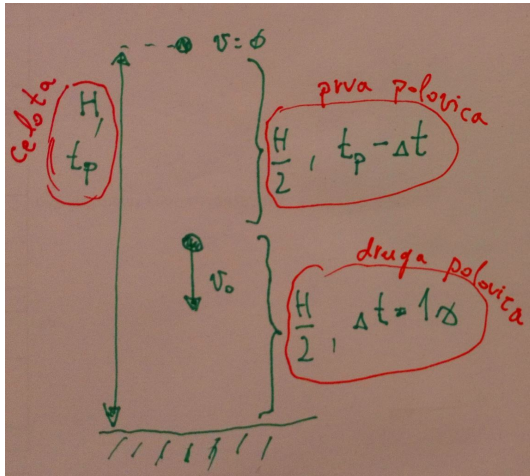 v = 0
celota
H,
t_p
prva polovica
H/2, t_p - Δt
v_0
druga polovica
H/2, Δt = 1s